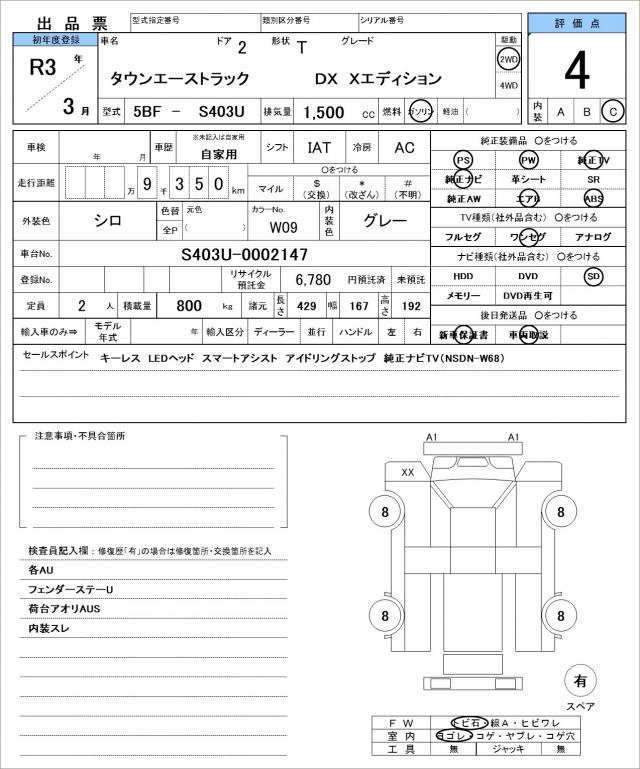 出品票 型式指定番号 類別区分番号 シリアル番号 評価点
初年度登録 車名 ドア 2 形状 T グレード 駆動
R3 年 タウンエーストラック DX Xエディション 2WD 4
4WD
3 月 型式 5BF － S403U 排気量 1,500 cc 燃料 ガソリン 軽油 ( ) 内装 A B C
車検 年 月 車歴 ※未記入は自家用 自家用 シフト IAT 冷房 AC 純正装備品 〇をつける
PS PW 純正TV
走行距離 万 9 千 350 km 〇をつける
マイル $ (交換) * (改ざん) # (不明) 純正ナビ 革シート SR
純正AW エアB ABS
外装色 シロ 色替 元色 カラーNo. W09 内装色 グレー TV種類(社外品含む) 〇をつける
全P ( ) フルセグ ワンセグ アナログ
車台No. S403U-0002147 ナビ種類(社外品含む) 〇をつける
登録No. リサイクル預託金 6,780 円預託済 未預託 HDD DVD SD
メモリー DVD再生可
定員 2 人 積載量 800 kg 諸元 長さ 429 幅 167 高さ 192
後日発送品 〇をつける
輸入車のみ⇒ モデル年式 年 輸入区分 ディーラー 並行 ハンドル 左 右 新車保証書 車両取説
セールスポイント キーレス LEDヘッド スマートアシスト アイドリングストップ 純正ナビTV(NSDN-W68)
注意事項・不具合箇所
A1 A1
XX
8 8
検査員記入欄：修復歴「有」の場合は修復箇所・交換箇所を記入
各AU
フェンダーステーU
荷台アオリAUS
内装スレ
8 8
有
スペア
FW トビ石・線A・ヒビワレ
室内 ヨゴレ・コゲ・ヤブレ・コゲ穴
工具 無 ジャッキ 無